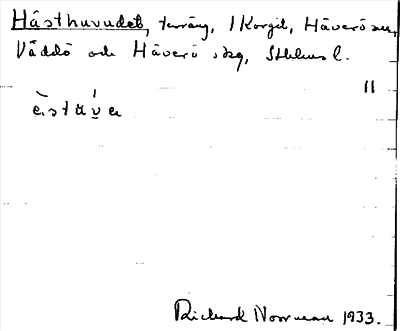 Hästhuvudet, terräng, 1 Korgil, Häverö sn,
Väddö och Häverö skg, Sthlms l.
11
Richard Norrman 1933.